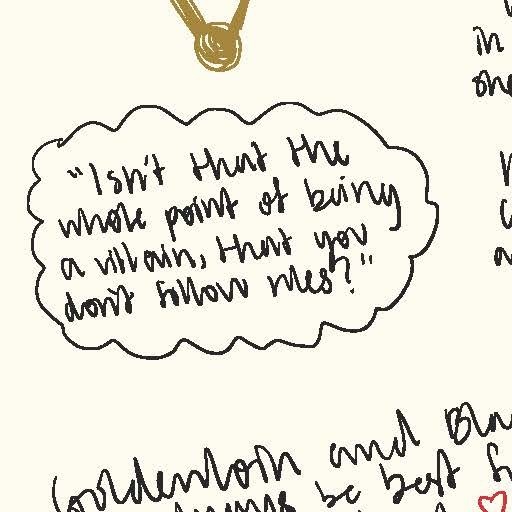 in
"Isn't that the
whole point of being
a villain, that you
don't follow rules?"
Goldenloin and
be best